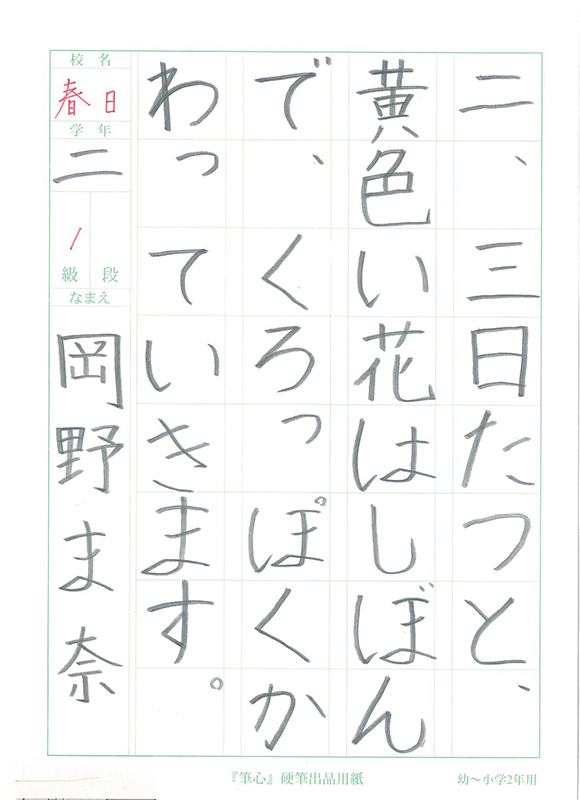 二、三日たつと、
黄色い花はしぼん
で、くろっぽくか
わっていきます。
校名
春日
学年
二
級 段
/
なまえ
岡野ま奈
『筆心』硬筆出品用紙
幼〜小学2年用